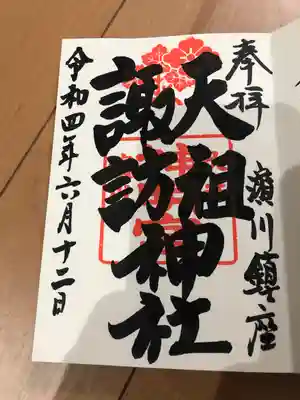 奉拝
濱川鎮座
天祖
諏訪
神社
令和四年六月十二日